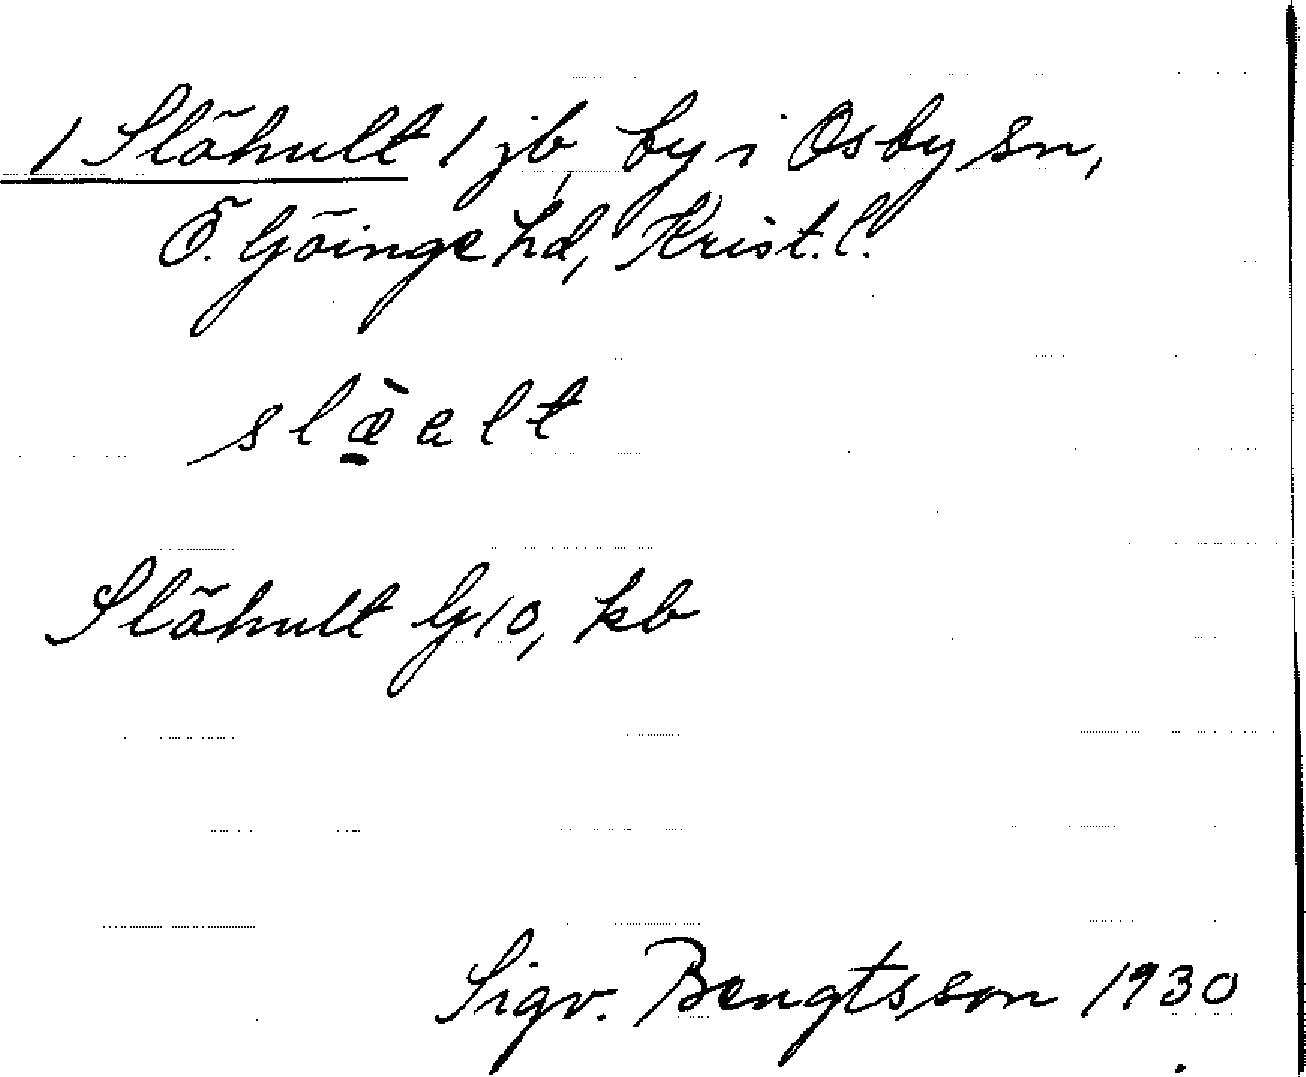 / Slähult / jb, by i Osby sn,
Ö. Göinge hd, Krist. l.
slæ̀alt
Slähult G10, kb
Sigv. Bengtsson 1930